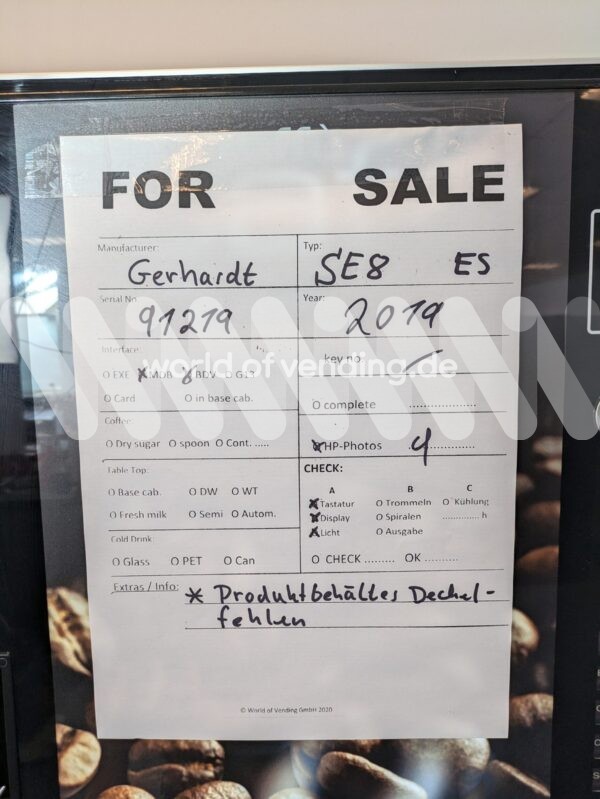 FOR SALE
Manufacturer: Typ:
Gerhardt SE8 ES
Serial No Year:
91219 2019
Interface: key no:
world of vending.de
O EXE X MDB X BDV O G13
O Card O in base cab. O complete ....................
Coffee:
O Dry sugar O spoon O Cont. ..... X HP-Photos 4 ..............
Table Top: CHECK:
A B C
O Base cab. O DW O WT X Tastatur O Trommeln O Kühlung
O Fresh milk O Semi O Autom. X Display O Spiralen .............. h
X Licht O Ausgabe
Cold Drink
O Glass O PET O Can O CHECK ......... OK ..........
Extras / Info: * Produktbehälter Deckel-
fehlen
© World of Vending GmbH 2020